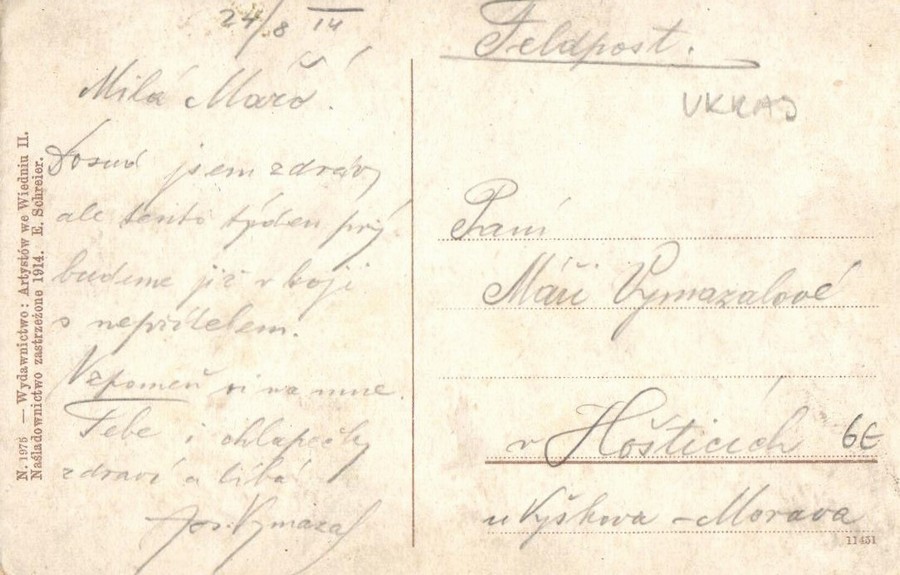 24/8 14
Milá Mářo!
Dosud jsem zdráv,
ale tento týden prý
budeme již v boji
s nepřítelem.
Vzpomeň si na mne.
Tebe i chlapečky
zdraví a líbá
Jos. Vymazal
Feldpost.
Paní
Máři Vymazalové
v Hošticích
6E
u Vyškova - Morava
11451
N. 1975 — Wydawnictwo: Artystów we Wiedniu II.
Naśladownictwo zastrzeżone 1914. E. Schreier.